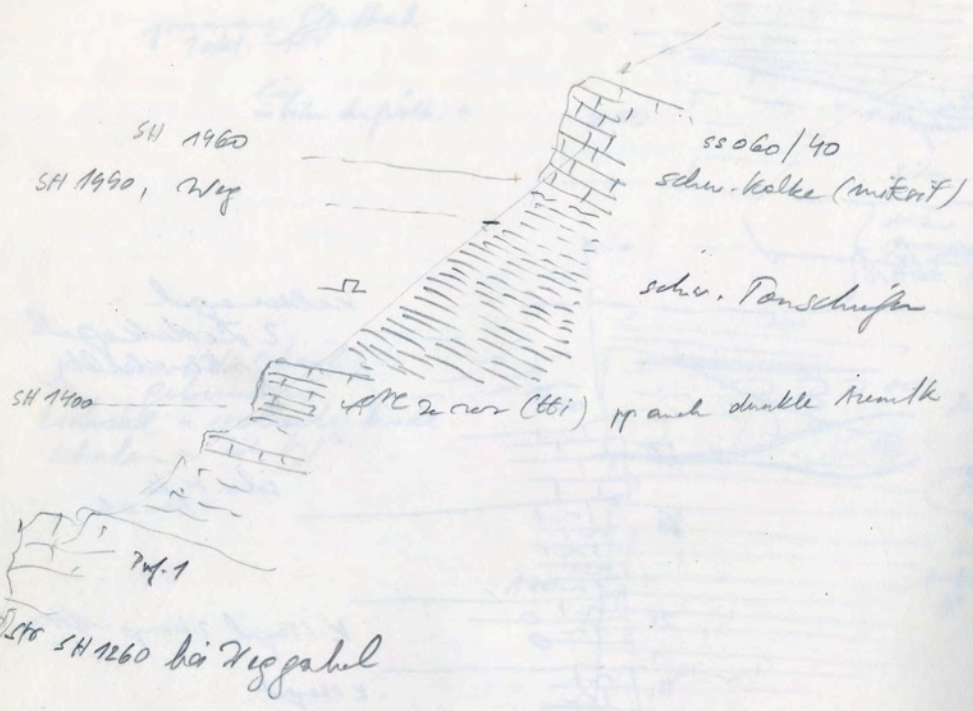 SH 1460
SH 1440, Weg
ss 060/40
schw. Kalke (mikrit)
schw. Tonschiefer
SH 1400
(tti) pp auch dunkle
Prof. 1
SH 1260 bei Weggabel